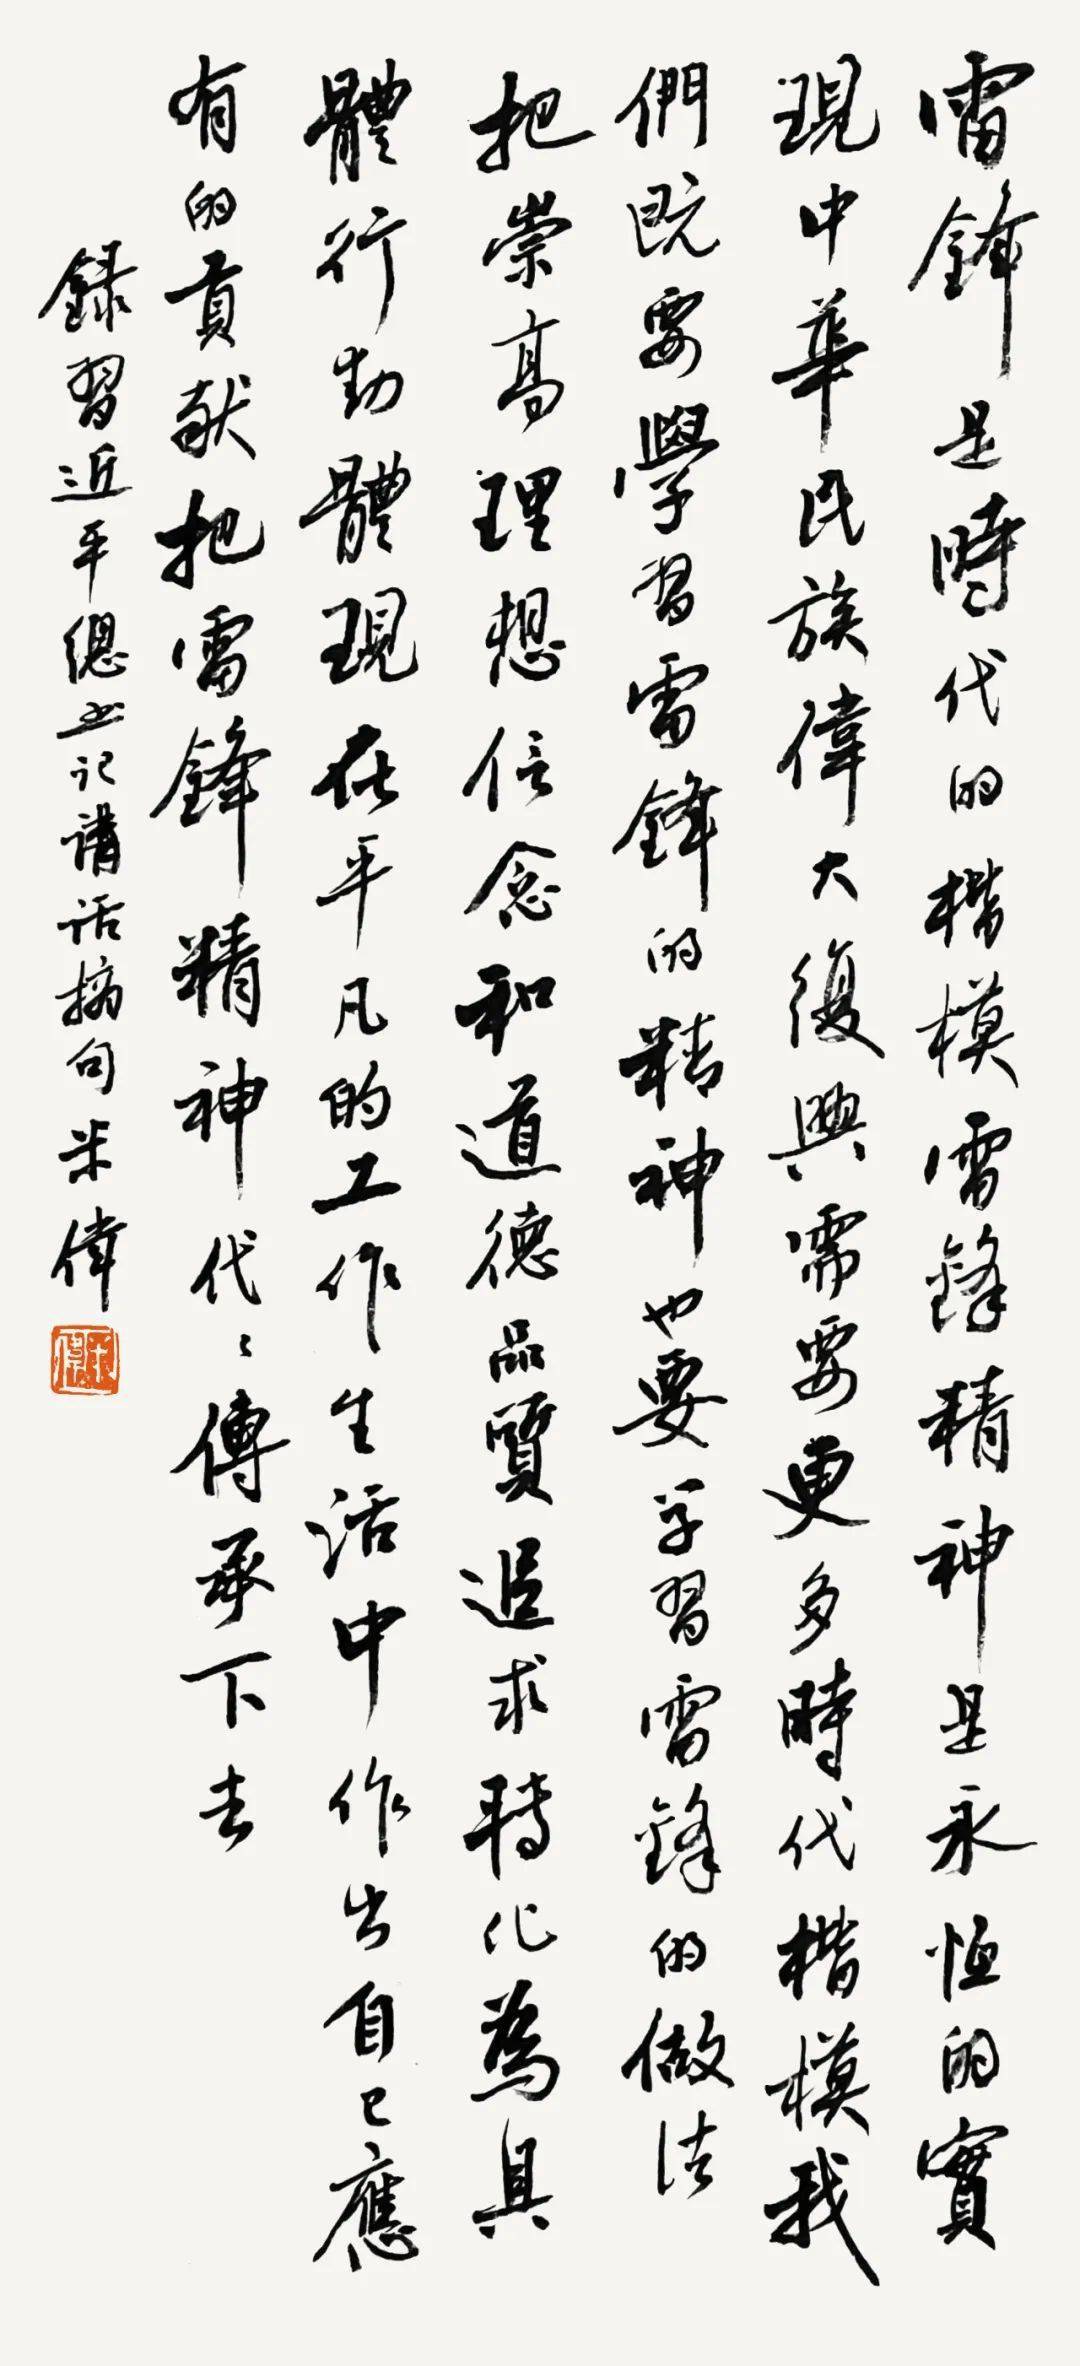 雷鋒是時代的楷模雷鋒精神是永恒的實
現中華民族偉大復興需要更多時代楷模我
們既要學習雷鋒的精神也要学習雷鋒的做法
把崇高理想信念和道德品質追求轉化為具
體行動體現在平凡的工作生活中作出自己應
有的貢献把雷鋒精神代々傳承下去
録習近平總书记講话摘句米偉